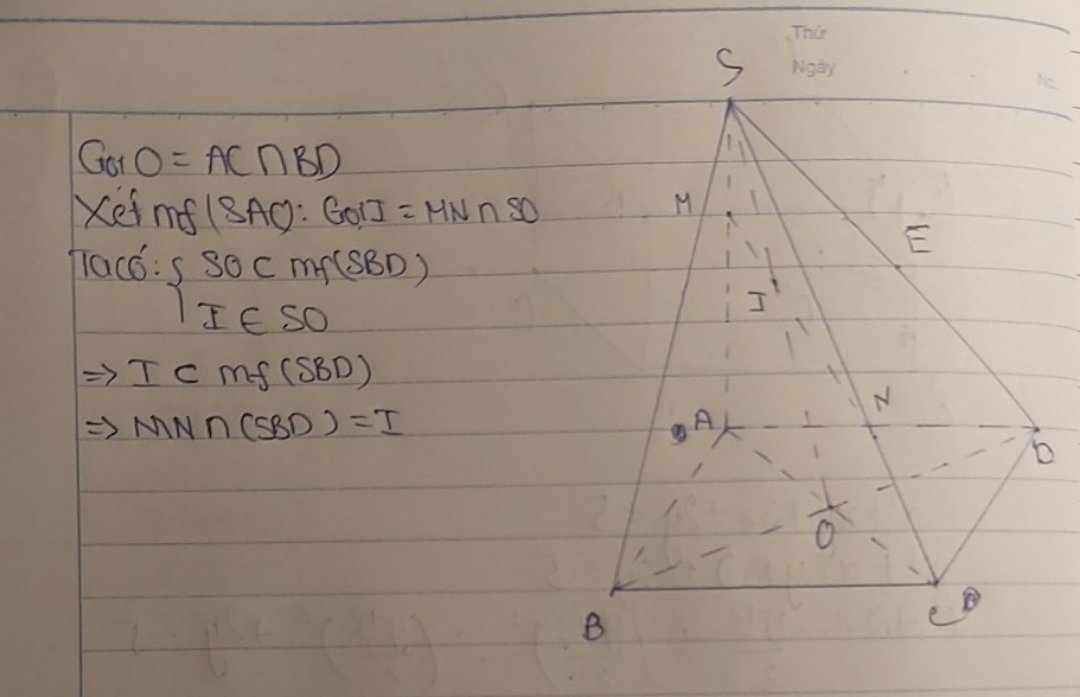 Thứ
Ngày
No.
Gọi O = AC ∩ BD
Xét mf (SAC): Gọi I = MN ∩ SO
Ta có: { SO ⊂ mf (SBD)
I ∈ SO
=> I ⊂ mf (SBD)
=> MN ∩ (SBD) = I
S
M
E
I
N
A
D
O
B
C